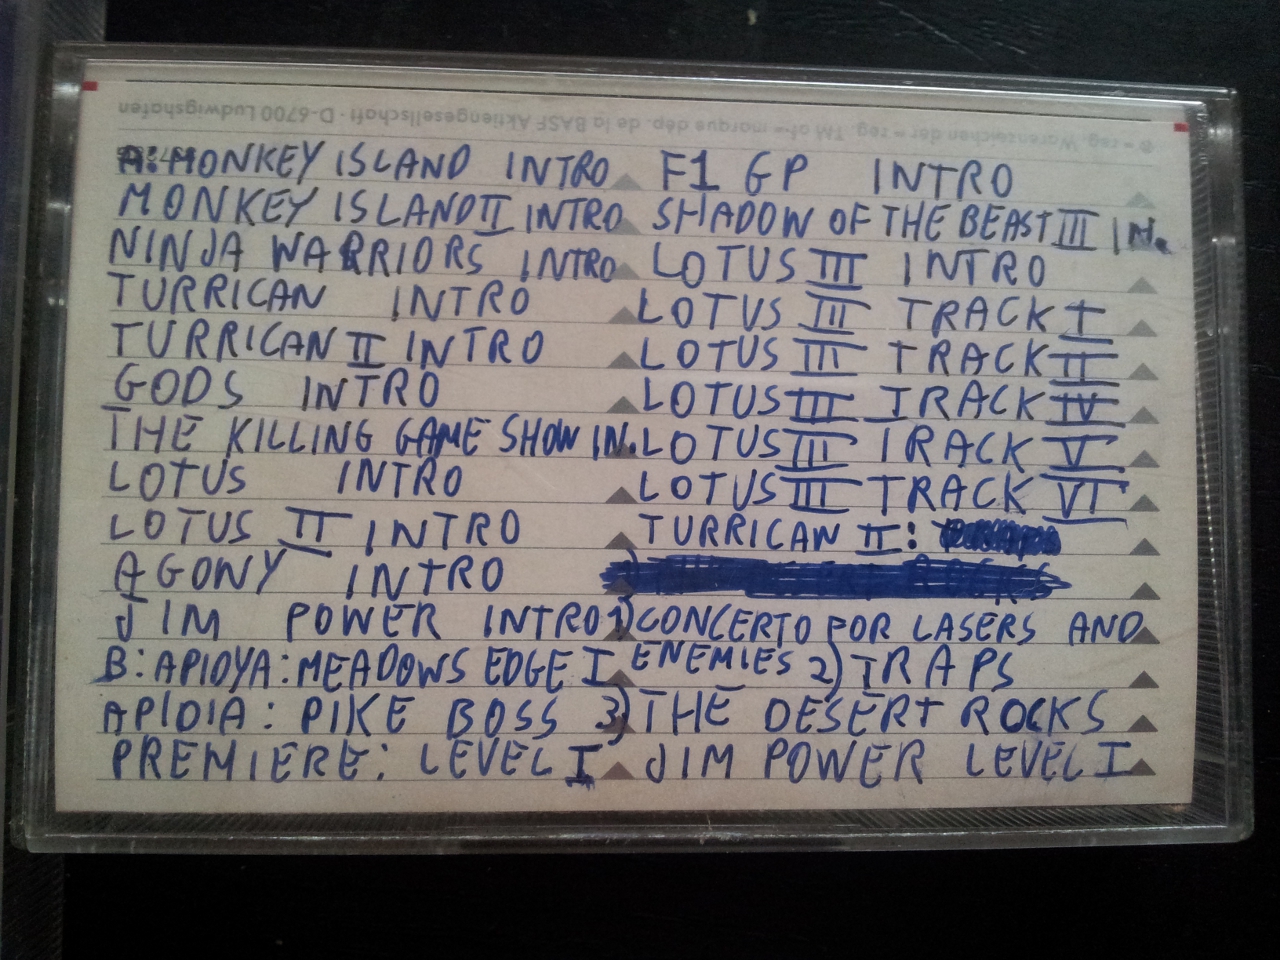 ® = reg. Warenzeichen der = reg. TM of = marque dép. de la BASF Aktiengesellschaft · D-6700 Ludwigshafen
A: MONKEY ISLAND INTRO
MONKEY ISLAND II INTRO
NINJA WARRIORS INTRO
TURRICAN INTRO
TURRICAN II INTRO
GODS INTRO
THE KILLING GAME SHOW IN.
LOTUS INTRO
LOTUS II INTRO
AGONY INTRO
JIM POWER INTRO
B: APIDYA: MEADOWS EDGE I
APIDIA: PIKE BOSS
PREMIERE: LEVEL I
F1 GP INTRO
SHADOW OF THE BEAST III IN.
LOTUS III INTRO
LOTUS III TRACK I
LOTUS III TRACK II
LOTUS III TRACK IV
LOTUS III TRACK V
LOTUS III TRACK VI
TURRICAN II:
1) CONCERTO FOR LASERS AND
ENEMIES 2) TRAPS
3) THE DESERT ROCKS
JIM POWER LEVEL I